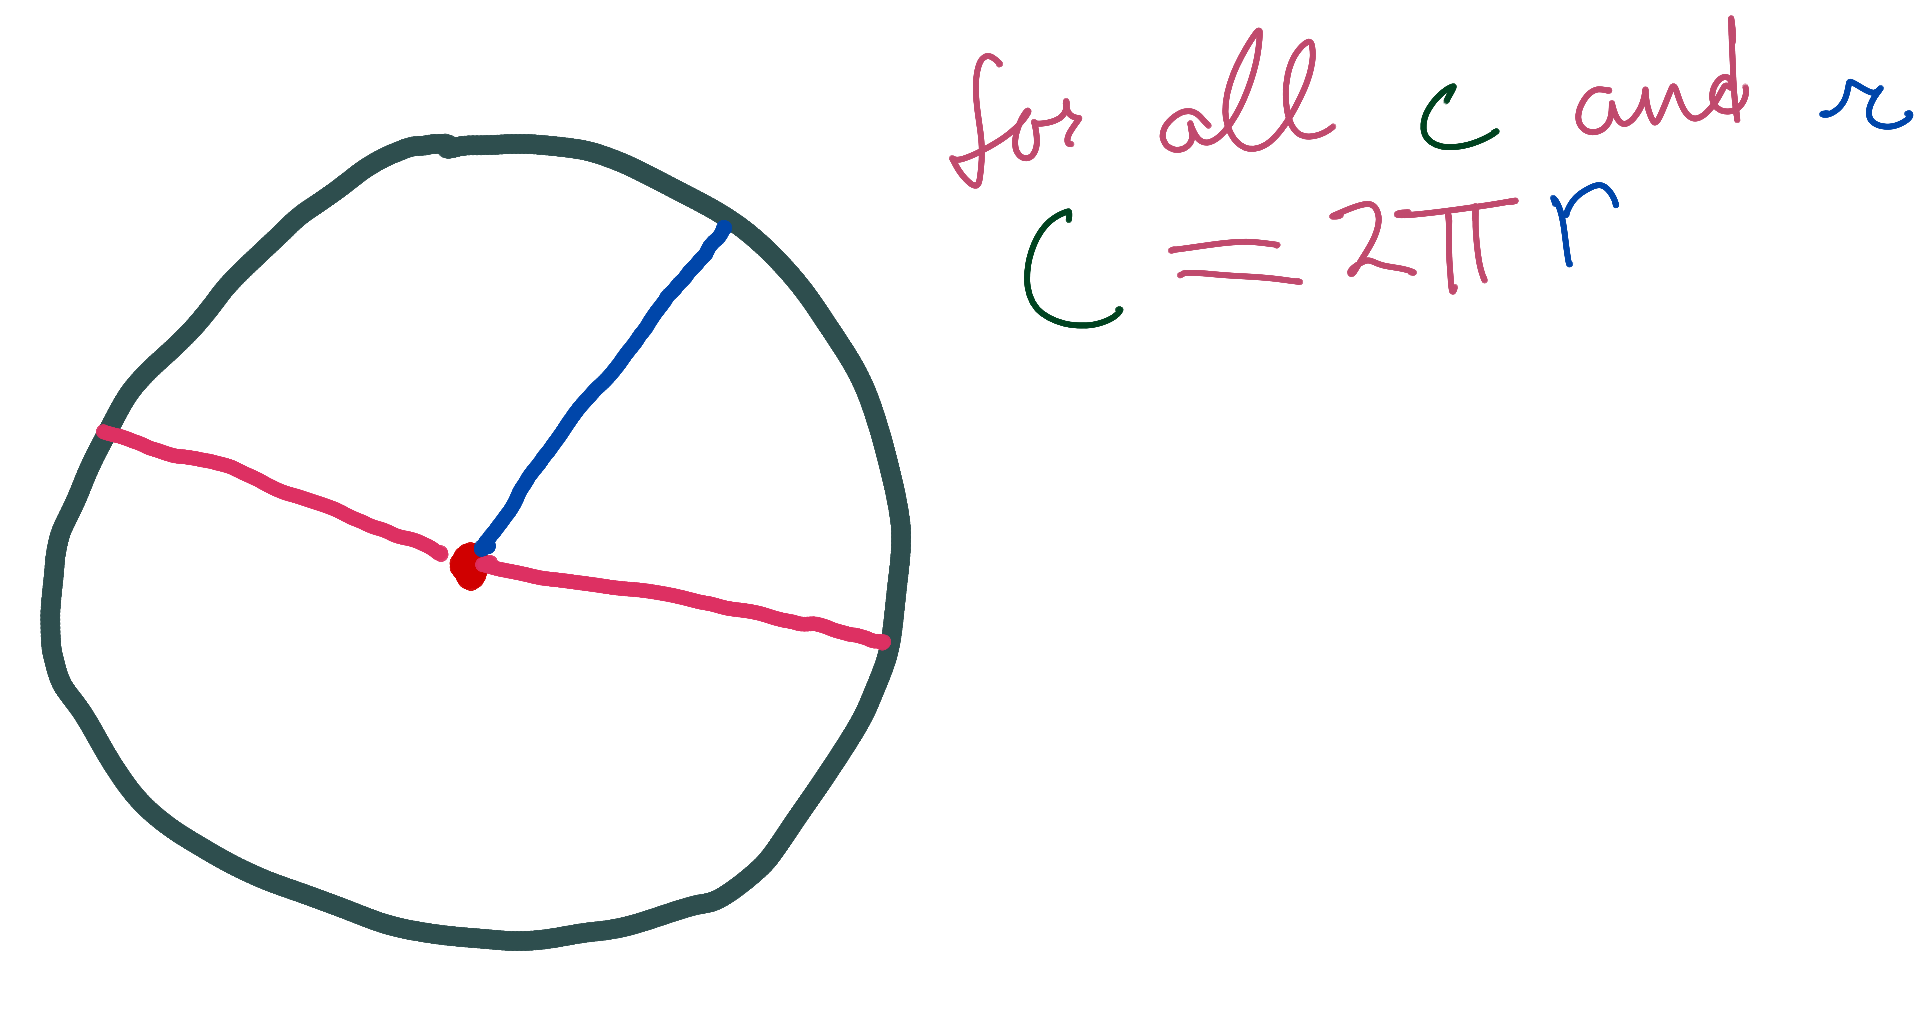 for all c and r
C = 2πr